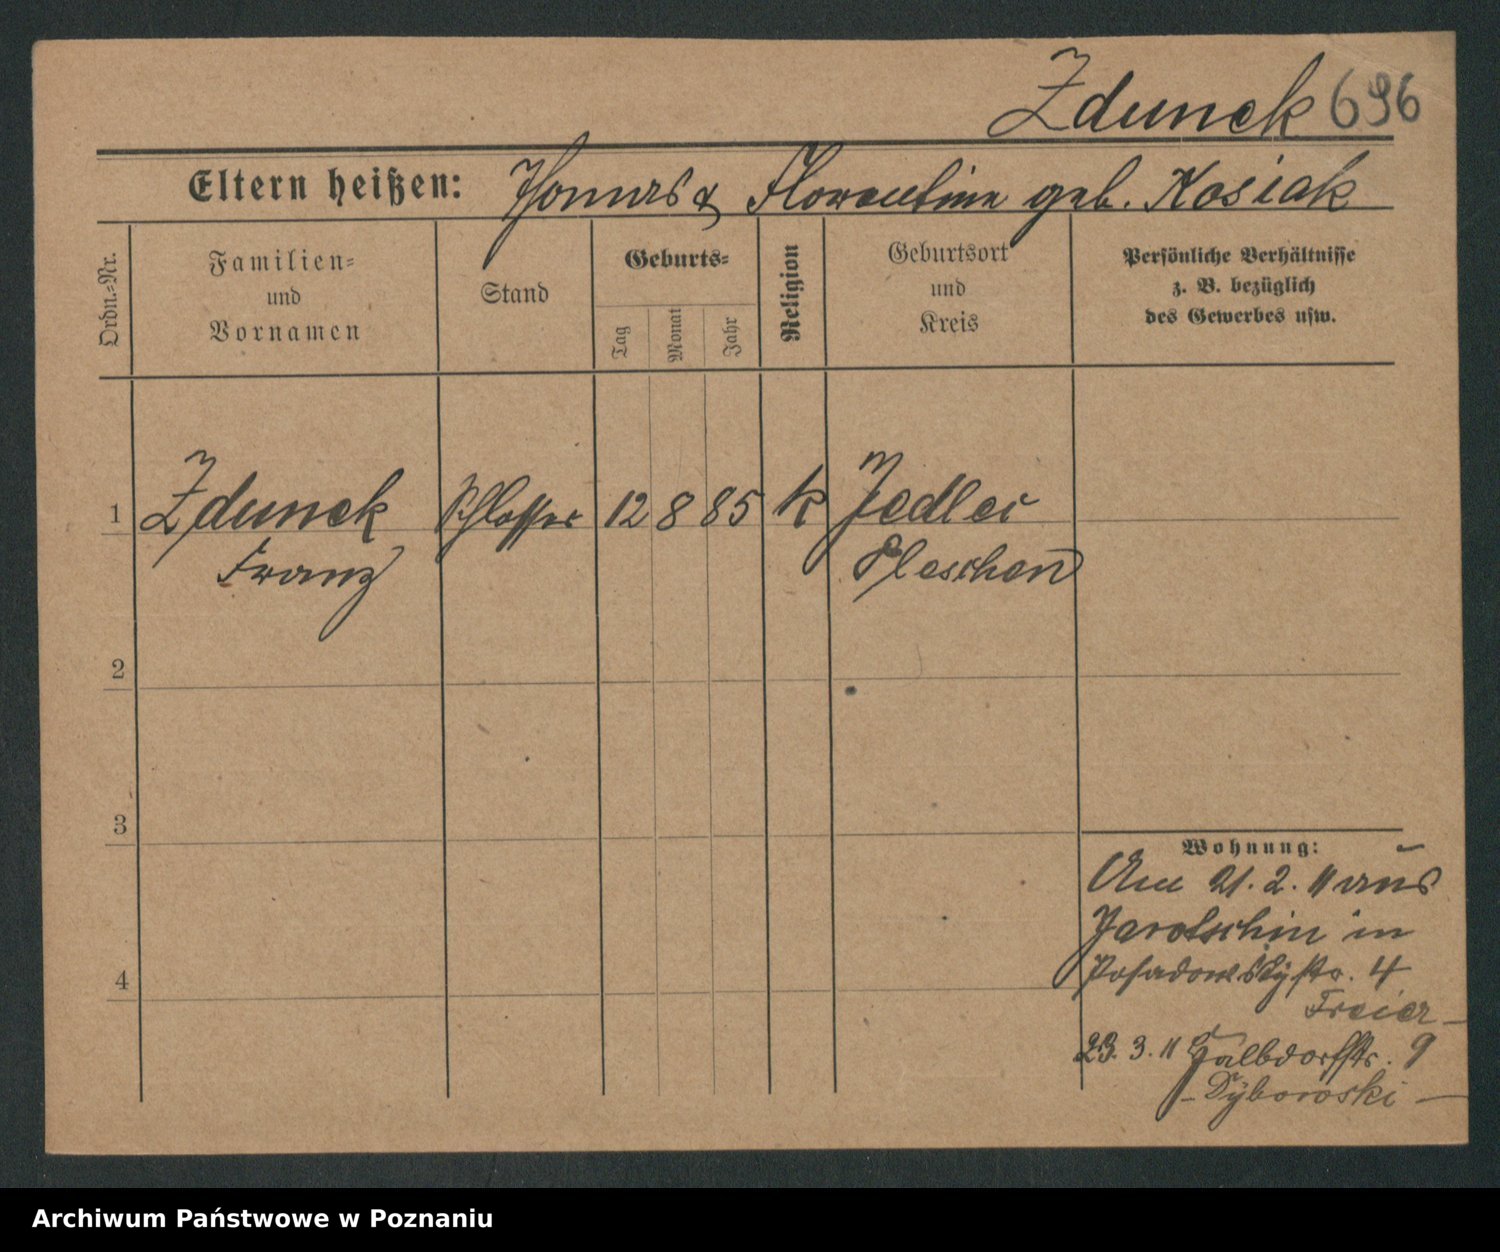 Zdunek 696
Eltern heißen: Thomas & Florentine geb. Kosiak
Ordn.-Nr.
Familien-
und
Vornamen
Stand
Geburts-
Tag
Monat
Jahr
Religion
Geburtsort
und
Kreis
Persönliche Verhältnisse
z. B. bezüglich
des Gewerbes usw.
1 Zdunek Schlosser 12 8 85 k Jedlec
Franz Pleschen
2
3
4
Wohnung:
Am 21. 2. 11 aus
Jarotschin in
Posadowskystr. 4
Freier
23. 3. 11 Halbdorfstr. 9
- Dyboroski -
Archiwum Państwowe w Poznaniu